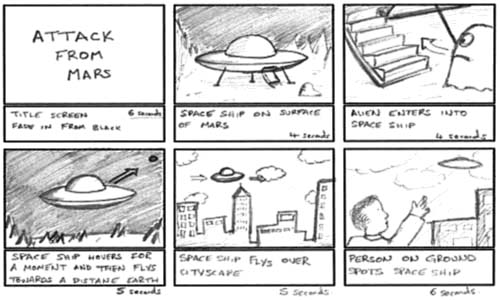 ATTACK
FROM
MARS
TITLE SCREEN
6 seconds
FADE IN FROM BLACK
SPACE SHIP ON SURFACE
OF MARS
4 seconds
ALIEN ENTERS INTO
SPACE SHIP
4 seconds
SPACE SHIP HOVERS FOR
A MOMENT AND THEN FLYS
TOWARDS A DISTANE EARTH
5 seconds
SPACE SHIP FLYS OVER
CITYSCAPE
5 seconds
PERSON ON GROUND
SPOTS SPACE SHIP
6 seconds